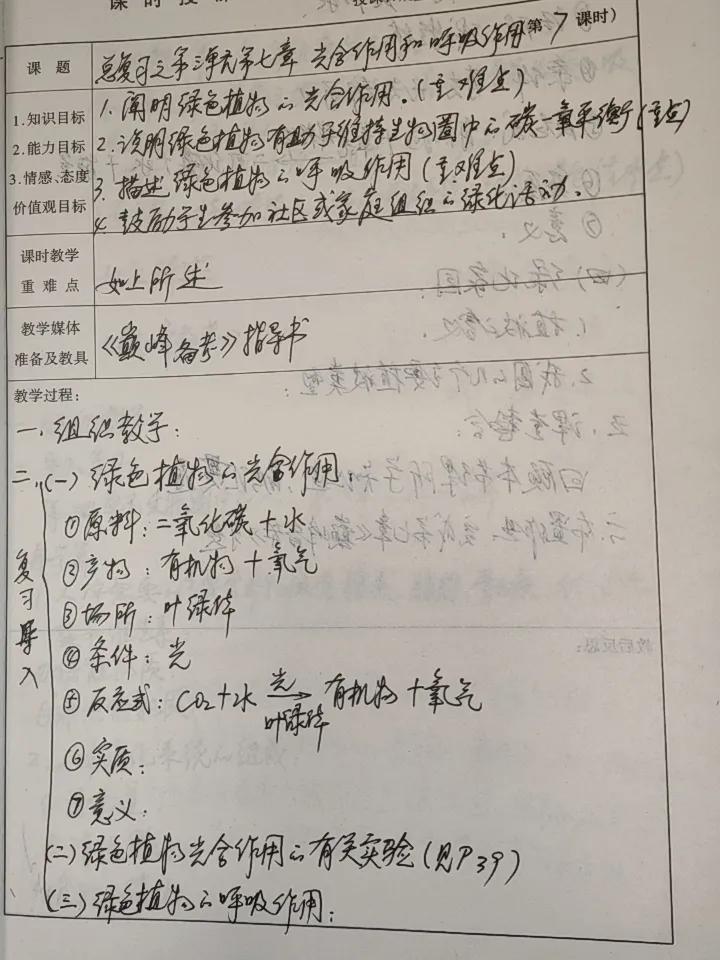 课时授
课题 总复习之第三单元第七章 光合作用和呼吸作用 第7课时)
1.知识目标 1. 阐明绿色植物的光合作用。(重难点)
2.能力目标 2. 说明绿色植物有助于维持生物圈中的碳—氧平衡(重点)
3.情感、态度 3. 描述绿色植物的呼吸作用(重难点)
价值观目标 4. 鼓励学生参加社区或家庭组织的绿化活动。
课时教学
重难点 如上所述
教学媒体
准备及教具 《巅峰备考》指导书
教学过程:
一. 组织教学:
二. 复习导入 (一) 绿色植物的光合作用:
①原料: 二氧化碳+水
②产物: 有机物+氧气
③场所: 叶绿体
④条件: 光
⑤反应式: CO2+水 光→叶绿体 有机物+氧气
⑥实质:
⑦意义:
(二) 绿色植物光合作用的有关实验(见P39)
(三) 绿色植物的呼吸作用: